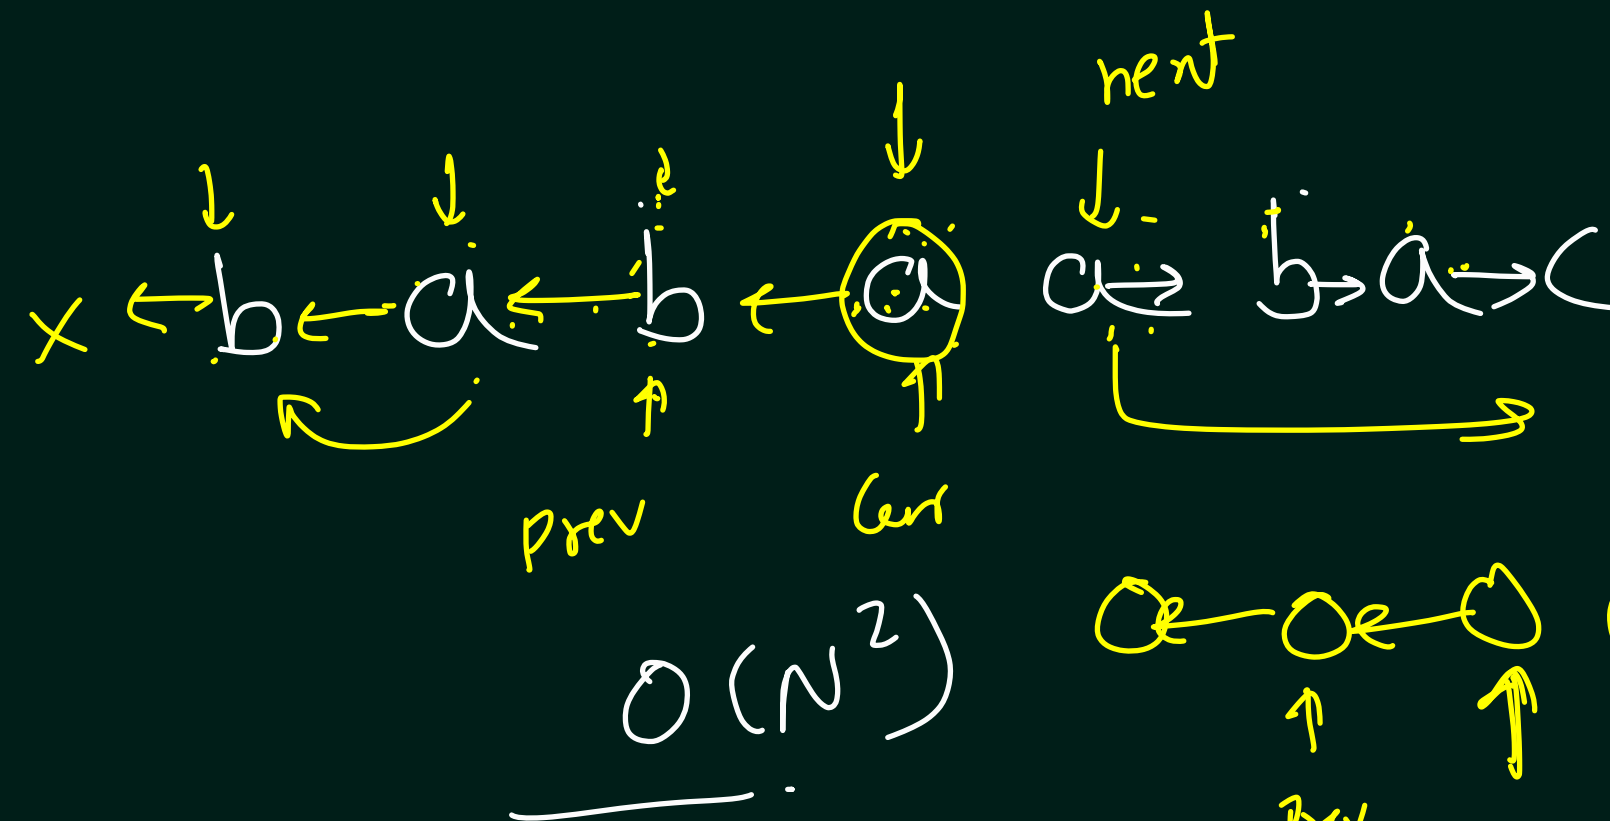 next
x b a b a a b a C
prev Curr
O(N²)
Prev